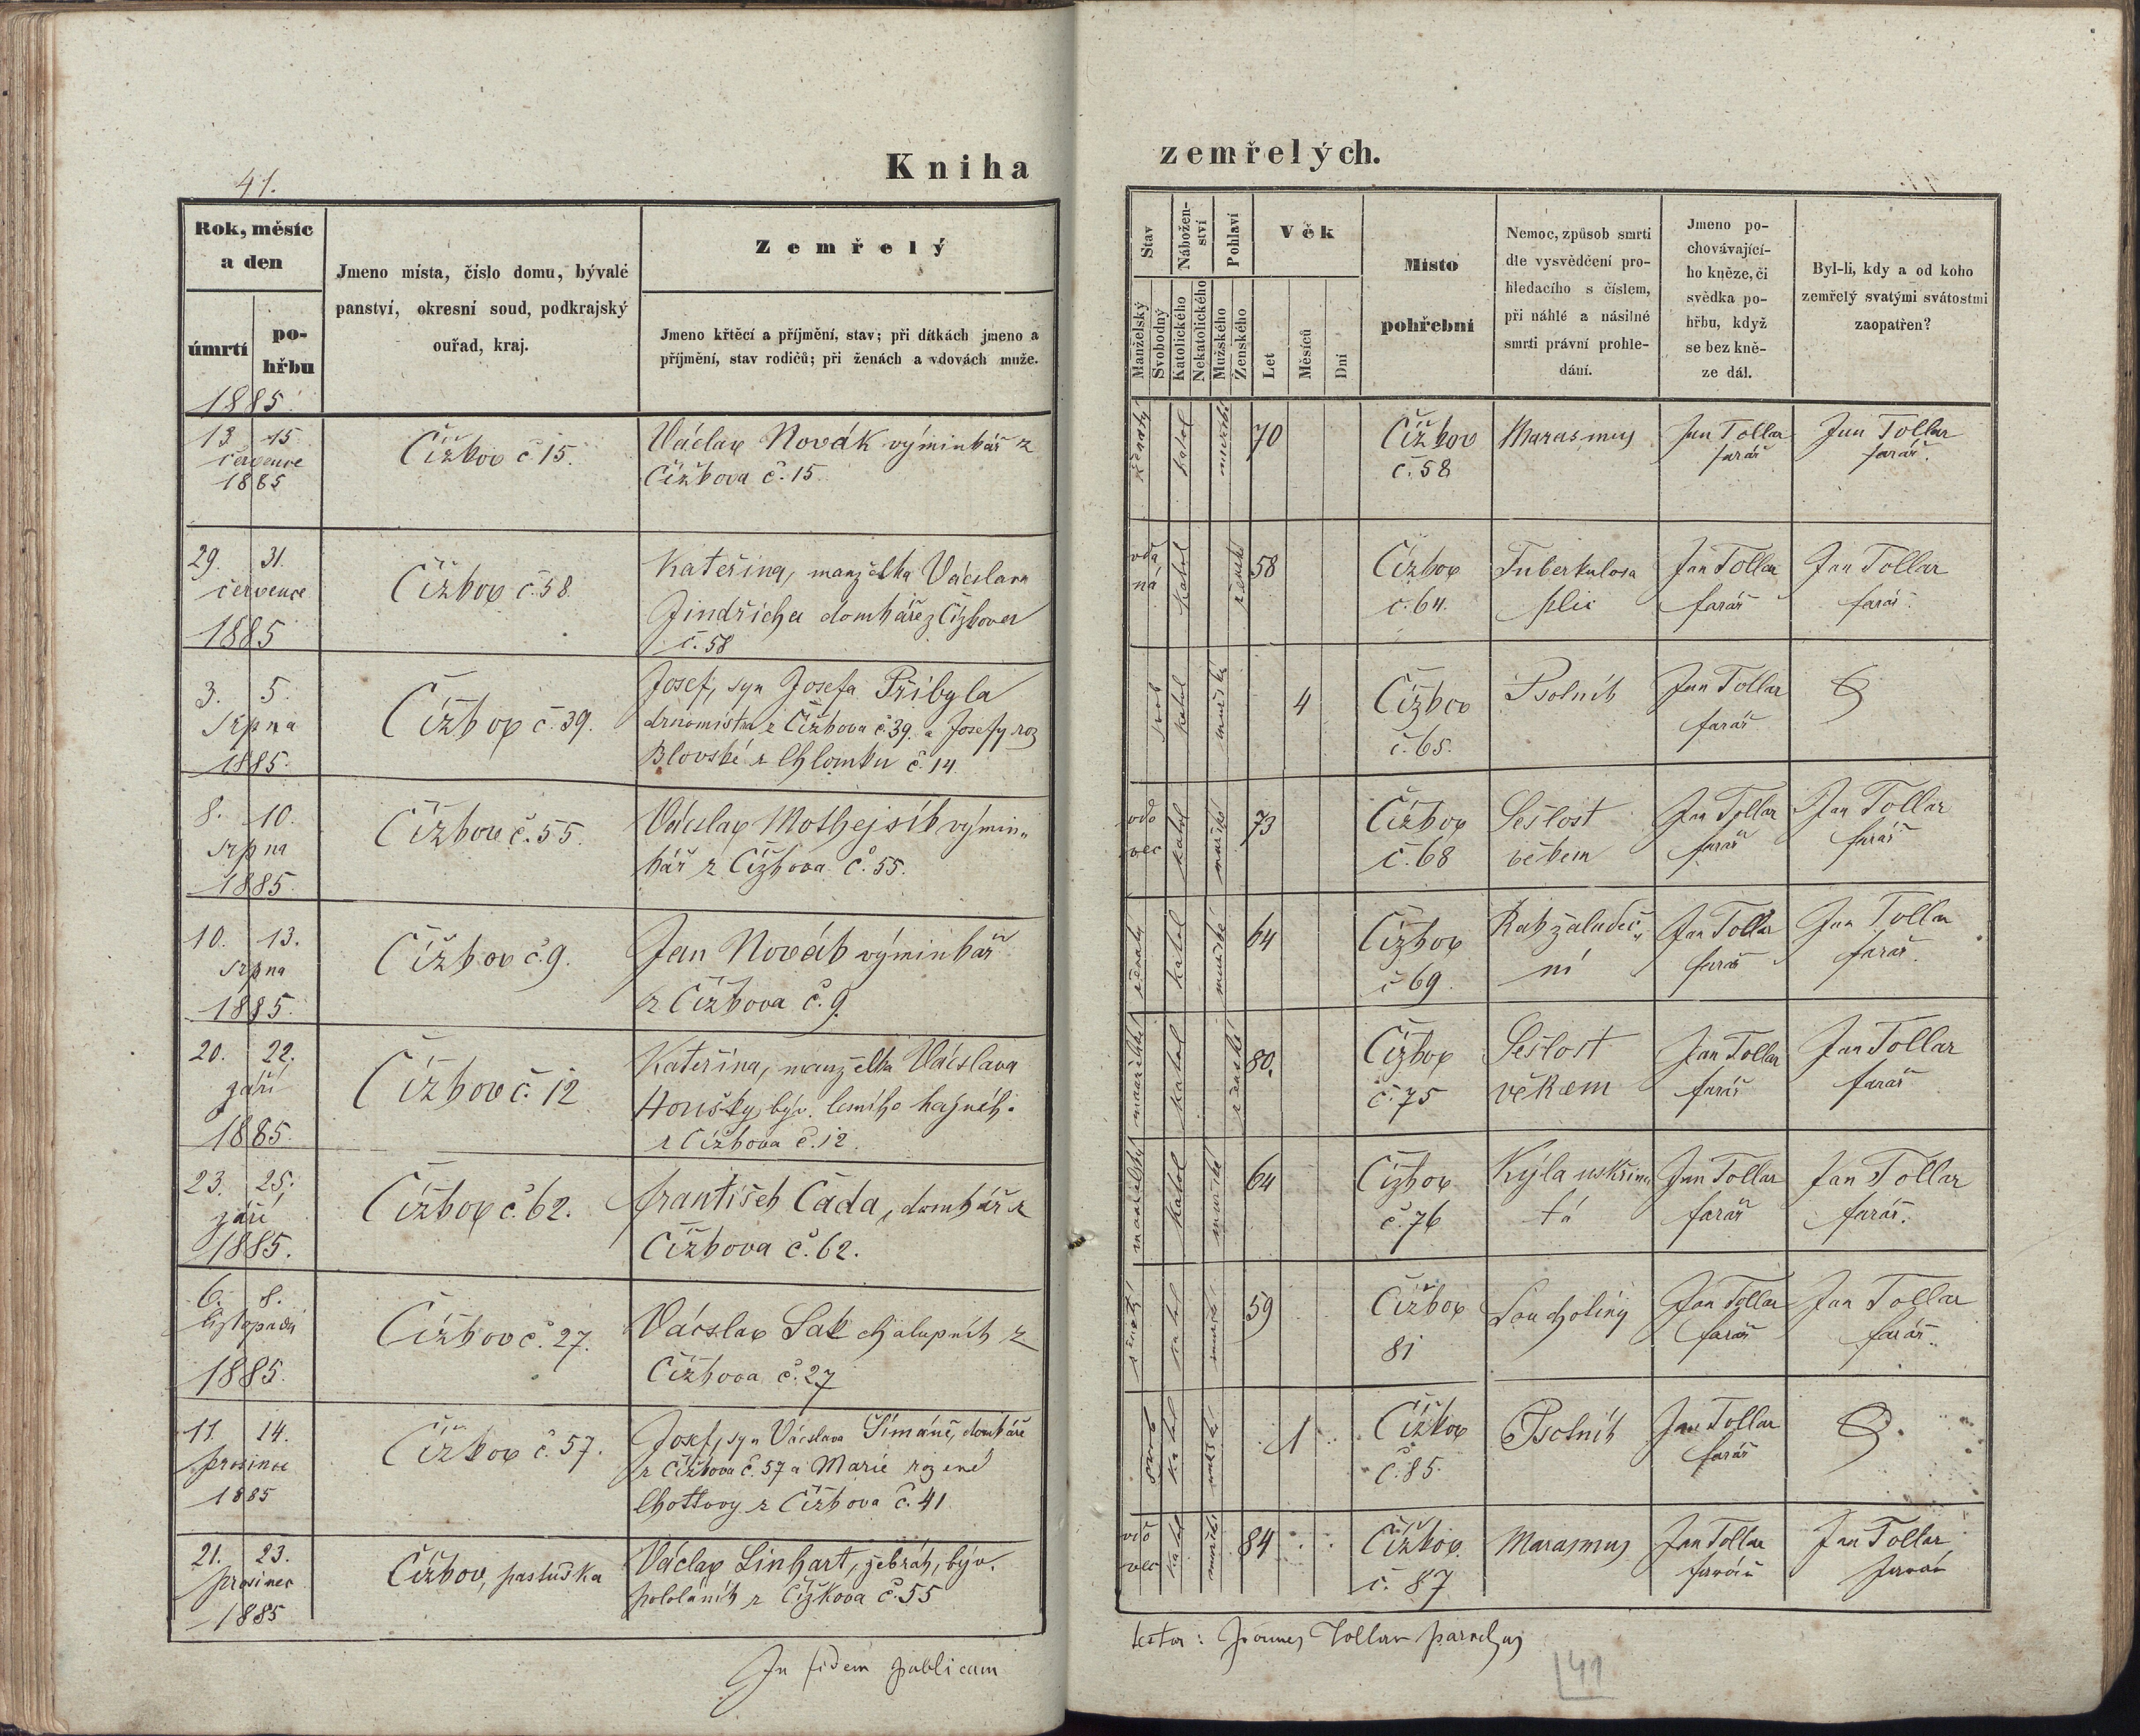 41.
Kniha
Rok, měsíc
a den
úmrtí
po-
hřbu
Jmeno místa, číslo domu, bývalé
panství, okresní soud, podkrajský
ouřad, kraj.
Zemřelý
Jmeno křtěcí a příjmění, stav; při dítkách jmeno a
příjmění, stav rodičů; při ženách a vdovách muže.
1885
13 15
července
1885
Čížkov č 15.
Václav Novák výminkář z
Čížkova č. 15
29. 31.
července
1885
Čížkov č. 58.
Kateřina, manželka Václava
Jindřicha domkáře z Čížkova
č. 58
3. 5.
srpna
1885.
Čížkov č. 39.
Josef, syn Josefa Přibyla
z Čížkova č. 39. a Josefy roz
Blovské z Chlomku č. 14.
8. 10.
srpna
1885.
Čížkov č. 55.
Václav Mothejsík výmin„
kář z Čížkova č. 55.
10. 13.
srpna
1885.
Čížkov č. 9.
Jan Novák výminkář
z Čížkova č. 9.
20. 22.
září
1885.
Čížkov č. 12
Kateřina, manželka Václava
Houšky, býv. lesního hajného
z Čížkova č. 12.
23. 25.
září
1885.
Čížkov č. 62.
František Čada, domkář z
Čížkova č. 62.
6. 8.
listopadu
1885.
Čížkov č. 27.
Vácslav Sak chalupník z
Čížkova č. 27
11. 14.
prosince
1885
Čížkov č. 57.
Josef, syn Václava Šimáně, domkáře
z Čížkova č. 57 a Marie rozené
Chottovy z Čížkova č. 41
21. 23.
prosinec
1885
Čížkov, pastuška
Václav Linhart, žebrák, býv.
pololáník z Čížkova č. 55
In fidem publicam
zemřelých.
Stav
Manželský
Svobodný
Nábožen-
ství
Katolického
Nekatolického
Pohlaví
Mužského
Ženského
Věk
Let
Měsíců
Dní
Místo
pohřební
Nemoc, způsob smrti
dle vysvědčení pro-
hledacího s číslem,
při náhlé a násilné
smrti právní prohle-
dání.
Jmeno po-
chovávající-
ho kněze, či
svědka po-
hřbu, když
se bez kně-
ze dál.
Byl-li, kdy a od koho
zemřelý svatými svátostmi
zaopatřen?
ženatý katol mužské 70
Čížkov
č. 58
Marasmus
Jan Tollar
farář
Jan Tollar
farář.
vda
ná
katol ženské 58
Čížkov
č. 64.
Tuberkulosa
plic
Jan Tollar
farář
Jan Tollar
farář.
svob katol mužské 4
Čížkov
č. 65.
Psotník
Jan Tollar
farář
vdo
vec
katol mužské 73
Čížkov
č. 68
Sešlost
věkem
Jan Tollar
farář
Jan Tollar
farář
ženatý katol mužské 64
Čížkov
č 69.
Rak žaludeč„
ní
Jan Tollar
farář
Jan Tollar
farář.
manželská katol ženské 80.
Čížkov
č. 75
Sešlost
věkem
Jan Tollar
farář
Jan Tollar
farář
manželský katol mužské 64
Čížkov
č. 76
Kýla uskřinu
tá
Jan Tollar
farář
Jan Tollar
farář.
ženatý katol mužské 59
Čížkov
81
Souchotiny
Jan Tollar
farář
Jan Tollar
farář.
svob katol mužské 1
Čížkov
č. 85.
Psotník
Jan Tollar
farář
vdo
vec
katol mužské 84
Čížkov.
č. 87
Marasmus
Jan Tollar
farář
Jan Tollar
farář
testor: Joannes Tollar parochus
41